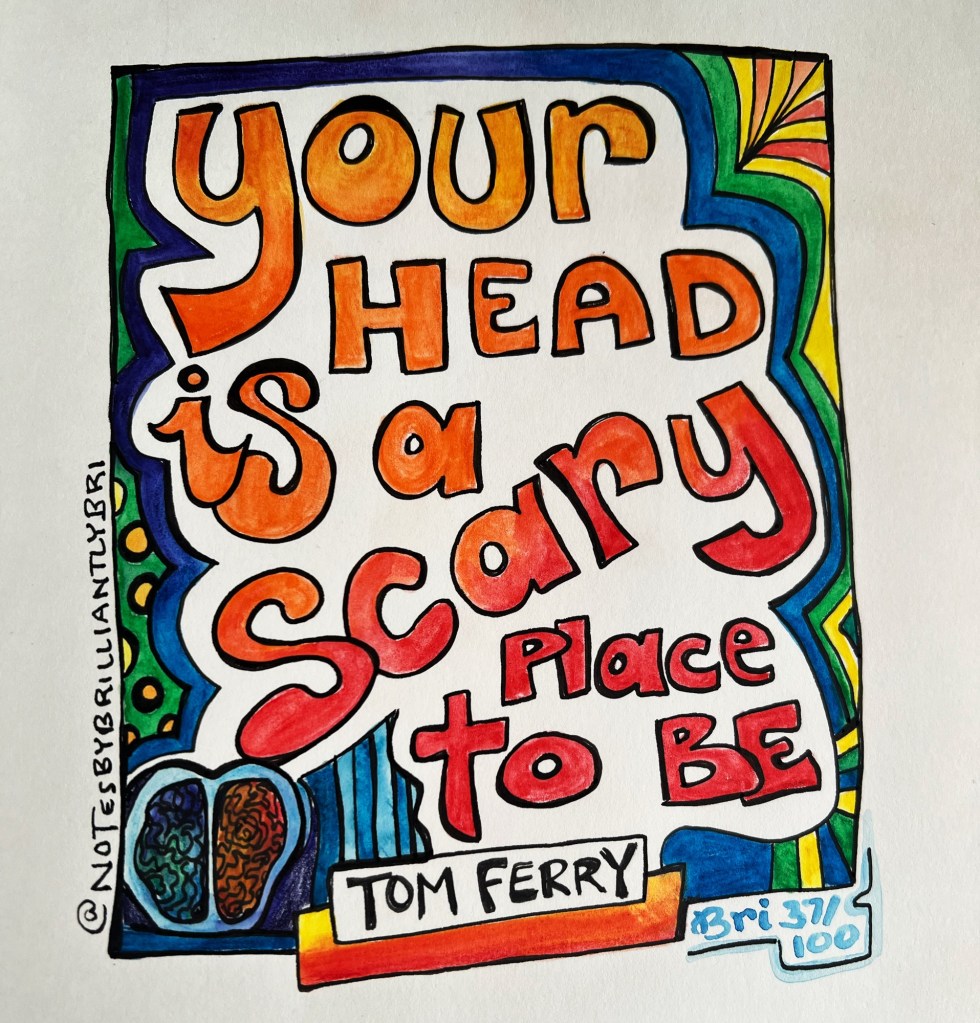 your
HEAD
is a
scary
Place
to BE
TOM FERRY
Bri 37/
100
@NOTESBYBRILLIANTLYBRI